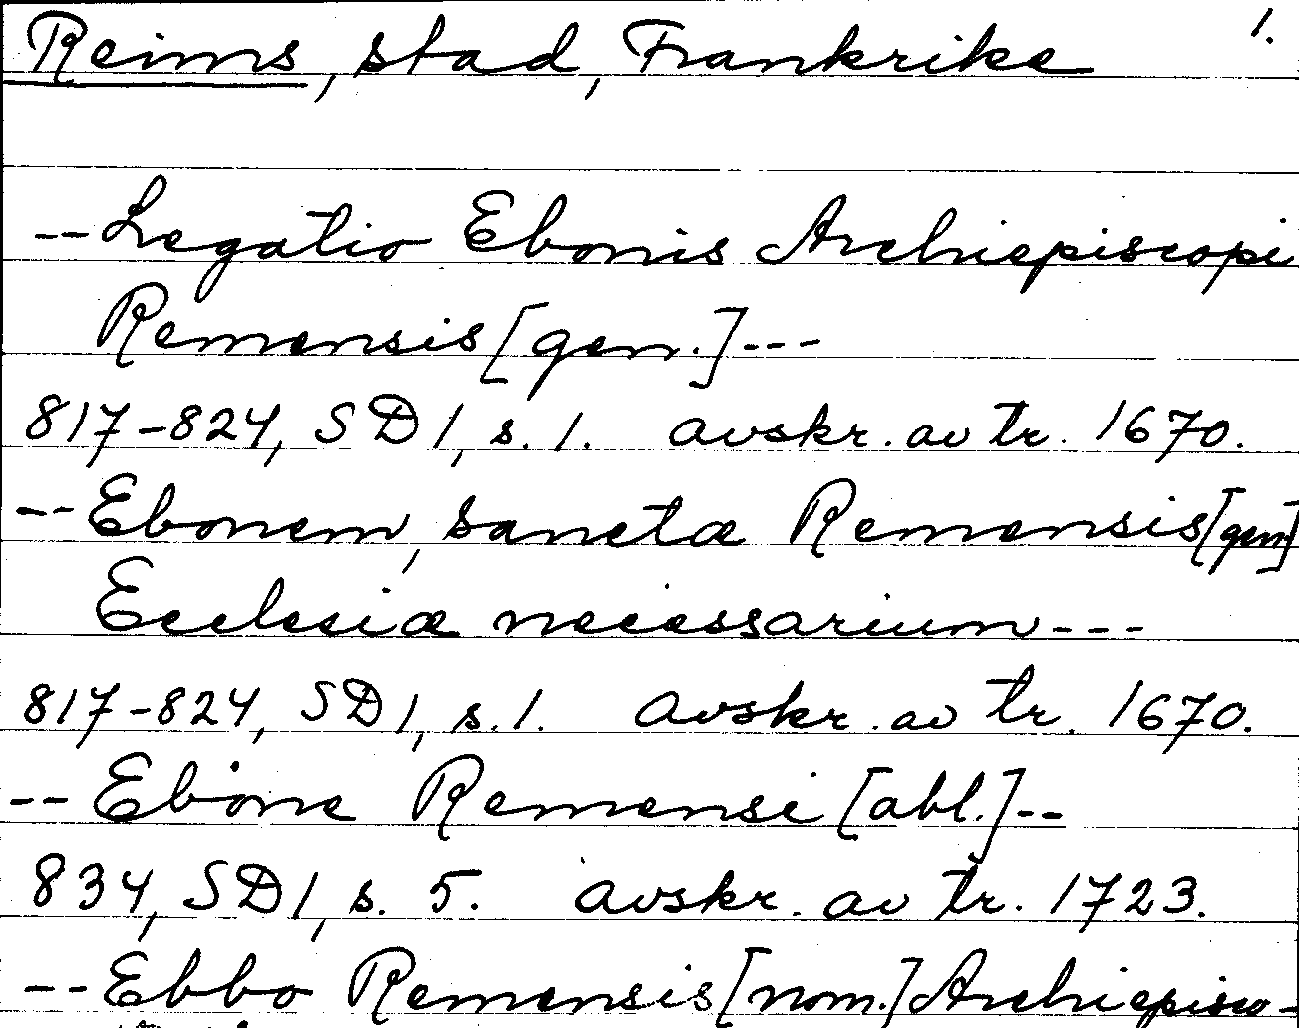 Reims, stad, Frankrike 1.
--Legatio Ebonis Archiepiscopi
Remensis [gen.]---
817-824, SD 1, s. 1. avskr. av tr. 1670.
--Ebonem, sanctæ Remensis [gen]
Ecclesiæ necessarium---
817-824, SD 1, s. 1. avskr. av tr. 1670.
--Ebone Remensi [abl.]--
834, SD 1, s. 5. avskr. av tr. 1723.
--Ebbo Remensis [nom.] Archiepisco-